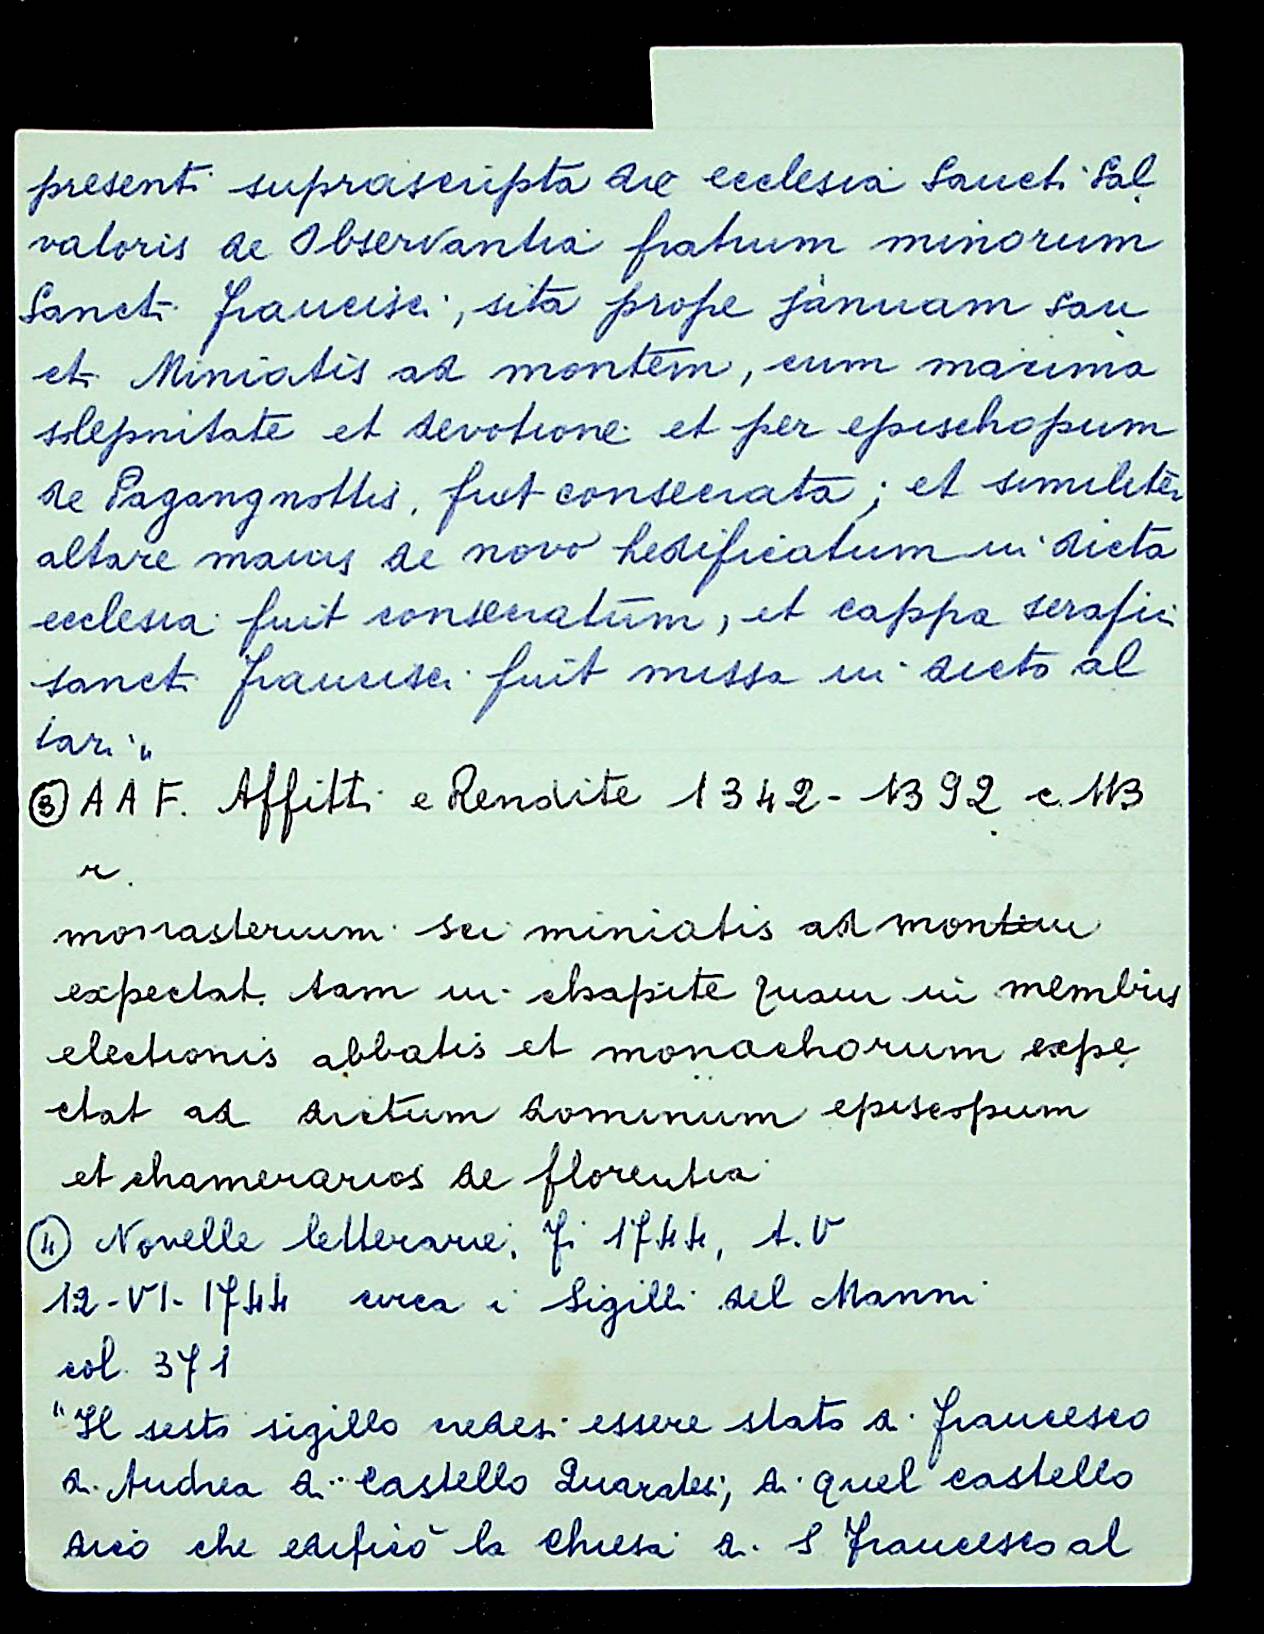 presenti suprascripta die ecclesia Sancti Sal
vatoris de Observantia fratrum minorum
Sancti Francisci, sita prope januam San
cti Miniatis ad montem, cum maxima
solepnitate et devotione et per epischopum
de Pagangnottis, fuit consecrata; et similiter
altare maius de novo hedificatum in dicta
ecclesia fuit consecratum, et cappa serafici
sancti Francisci fuit missa in dicto al
tari"
③ A A F. Affitti e Rendite 1342-1392 c. 113
r.
monasterium sci miniatis ad montem
expectat. tam in chapite quam in membris
electionis abbatis et monachorum expe
ctat ad dictum dominum episcopum
et chamerarios de florentia
④ Novelle letterarie, Fi 1744, t. V
12-VI-1744 circa i Sigilli del Manni
col. 371
"Il sesto sigillo credesi essere stato di Francesco
di Andrea di Castello Quaratesi, di quel castello
dico che edificò la Chiesa di S Francesco al